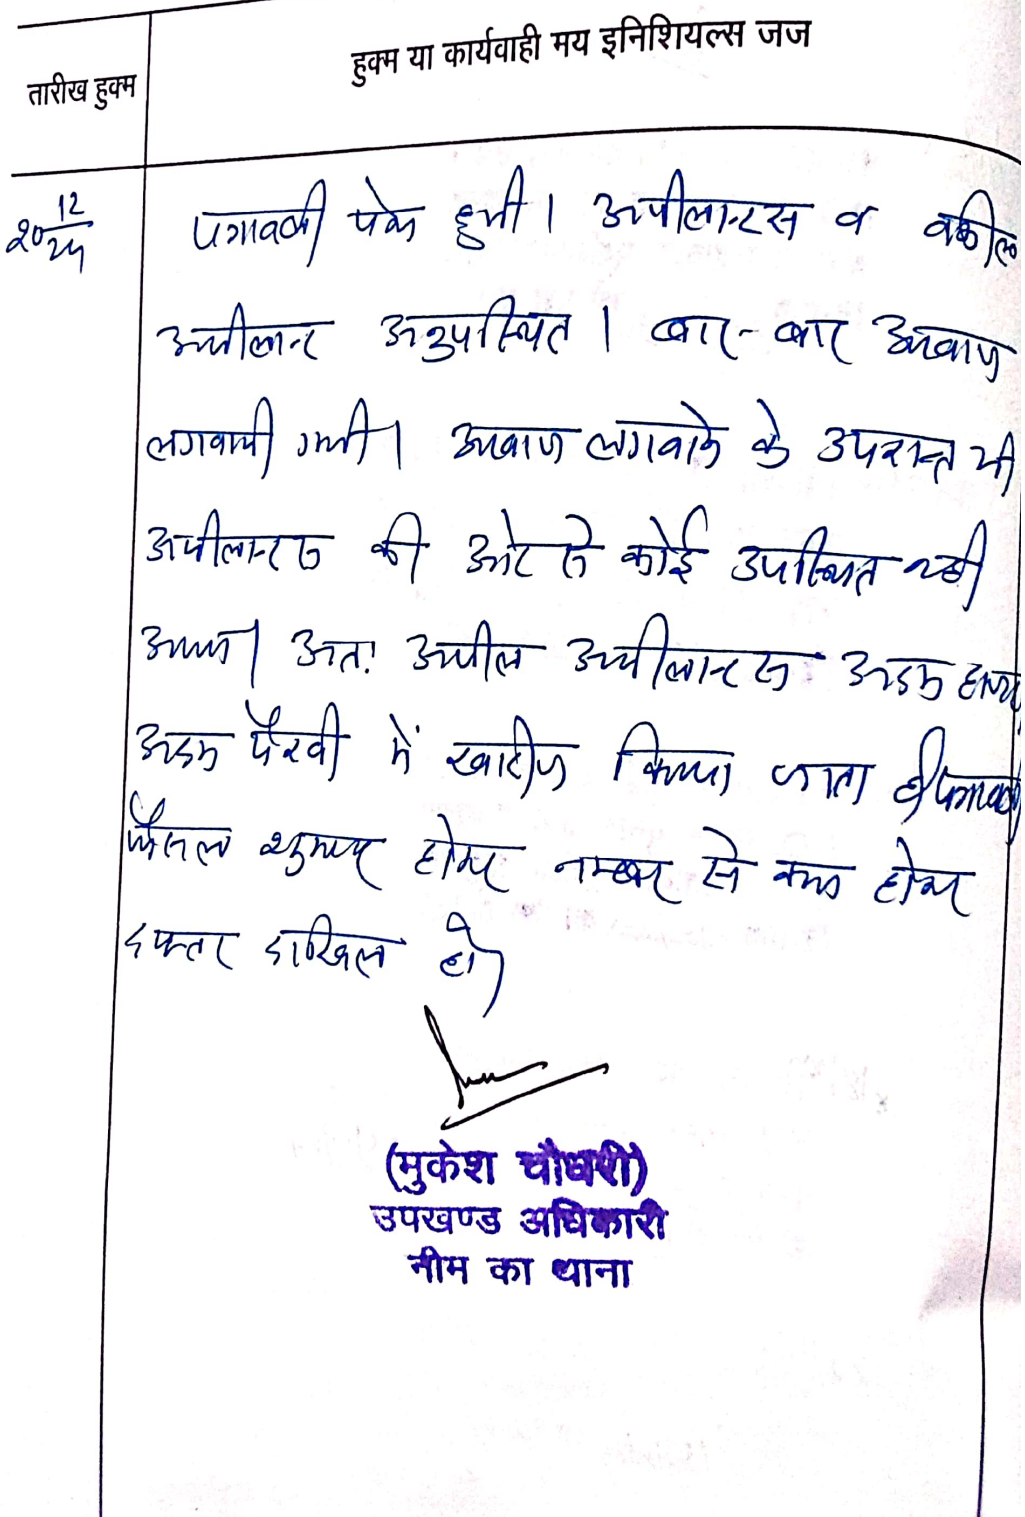 तारीख हुक्म
हुक्म या कार्यवाही मय इनिशियल्स जज
12
20
24
पत्रावली पेश हुयी। अपीलान्टस व वकील
अपीलान्ट अनुपस्थित। बार-बार आवाज
लगवायी गयी। आवाज लगवाने के उपरान्त भी
अपीलान्टस की ओर से कोई उपस्थित नही
आया। अतः अपील अपीलान्टस अदम हाजरी
अदम पैरवी में खारीज किया जाता है। पत्रावली
फैसल शुमार होकर नम्बर से कम होकर
दफ्तर दाखिल हो।
(मुकेश चौधरी)
उपखण्ड अधिकारी
नीम का थाना